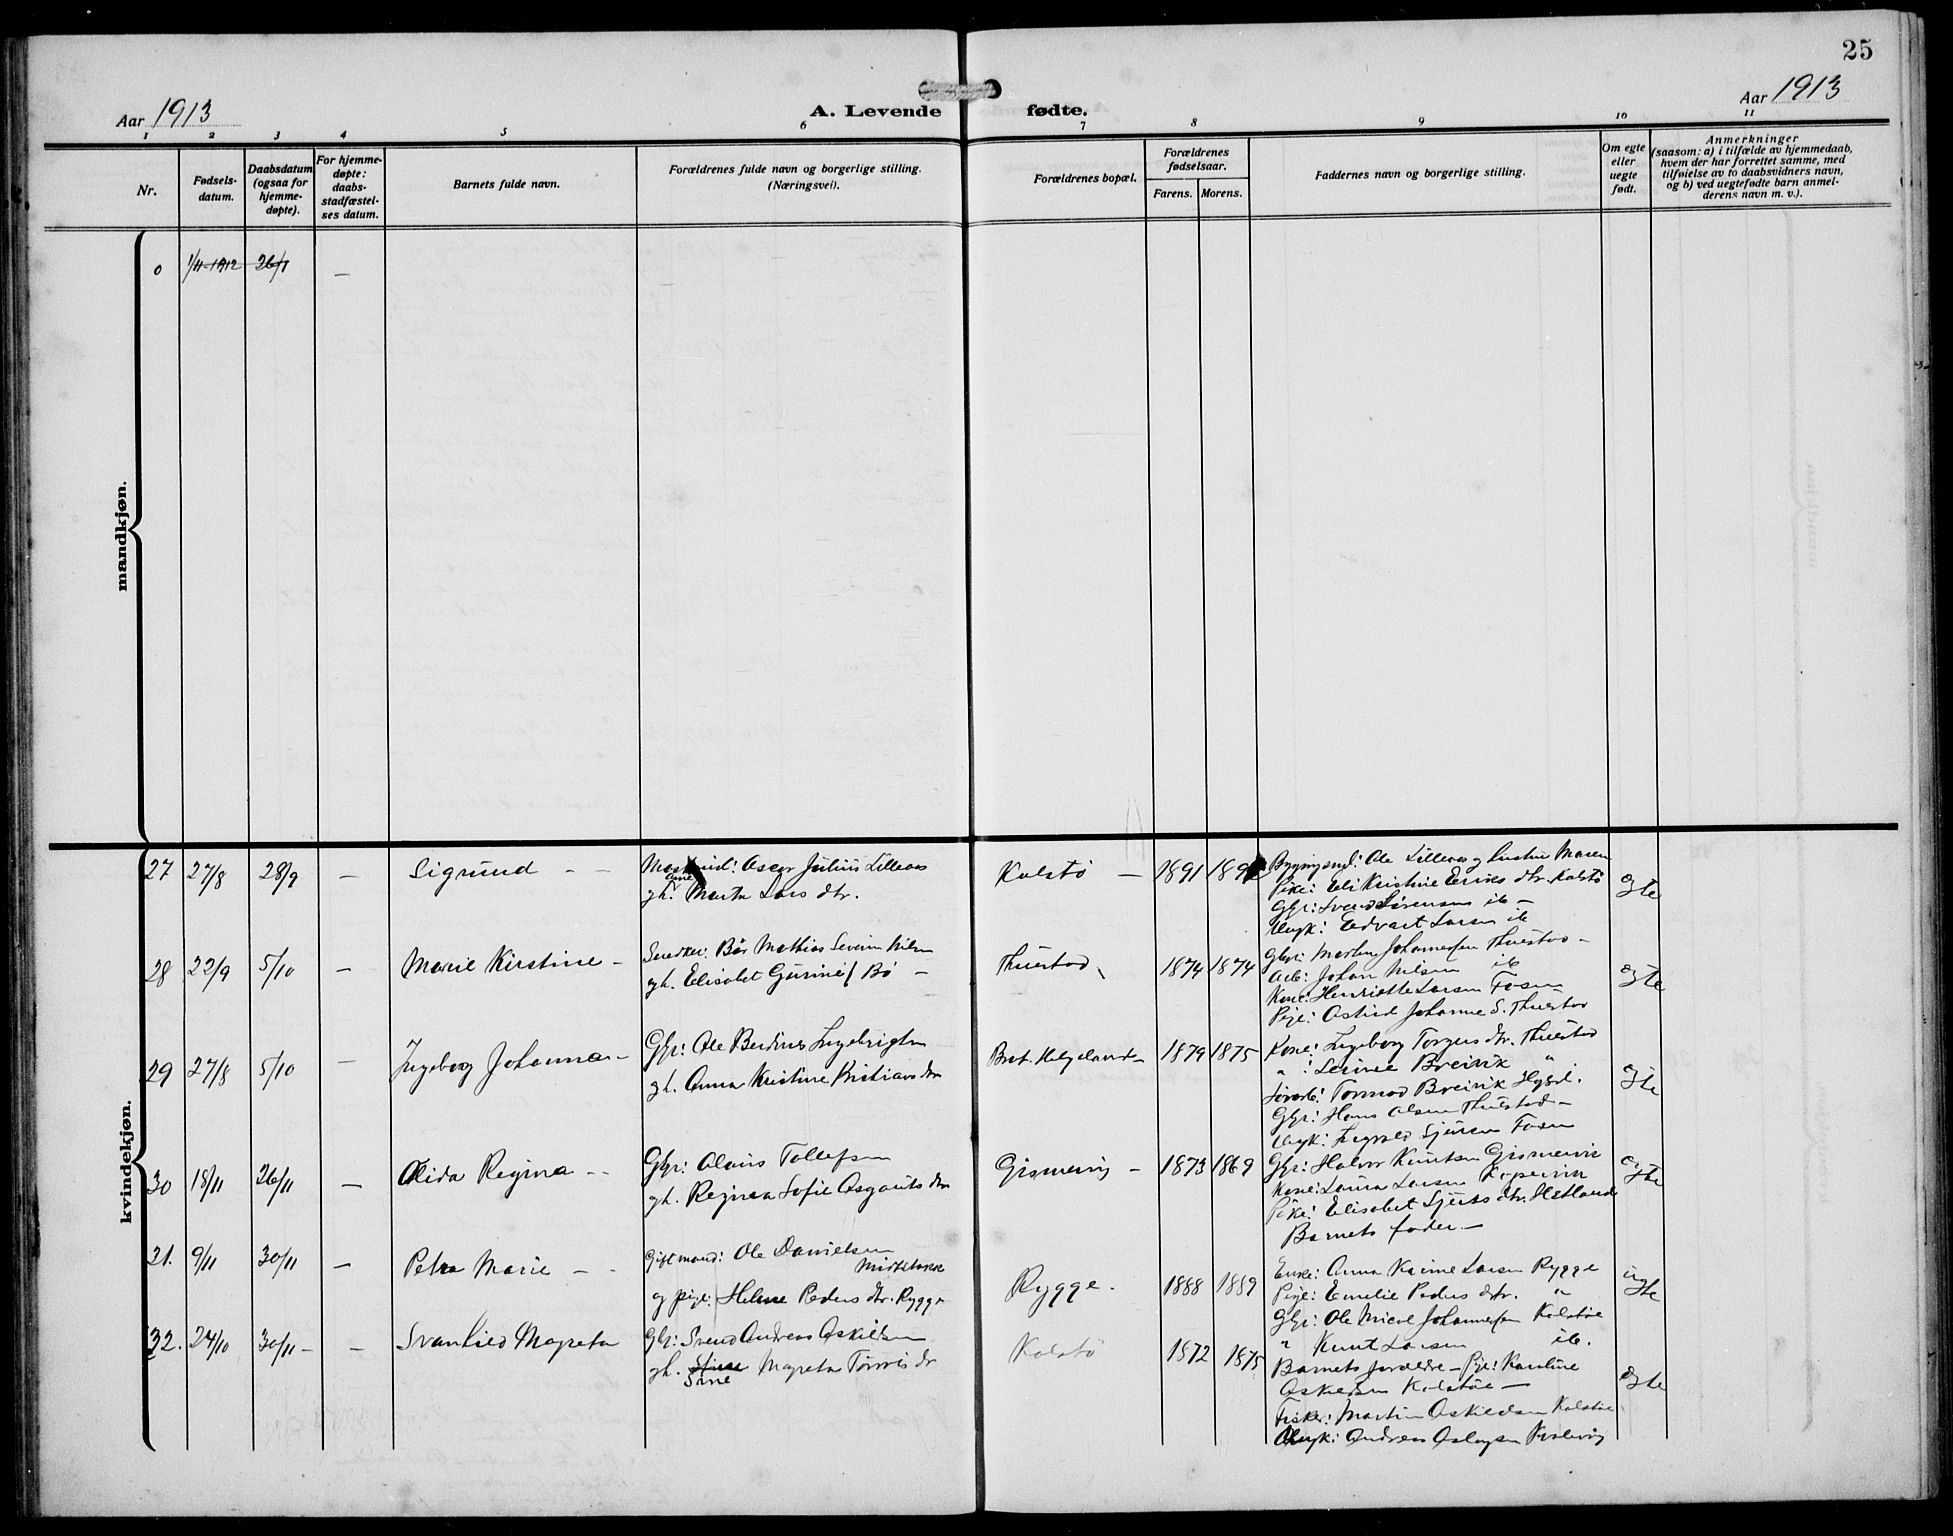 25
Aar 1913
A. Levende fødte.
Aar 1913
1 2 3 4 5 6 7 8 9 10 11
Nr.
Fødsels-
datum.
Daabsdatum
(ogsaa for
hjemme-
døpte).
For hjemme-
døpte:
daabs-
stadfæstel-
ses datum.
Barnets fulde navn.
Forældrenes fulde navn og borgerlige stilling.
(Næringsvei).
Forældrenes bopæl.
Forældrenes
fødselsaar.
Farens. Morens.
Faddernes navn og borgerlige stilling.
Om egte
eller
uegte
født.
Anmerkninger
(saasom: a) i tilfælde av hjemmedaab,
hvem der har forrettet samme, med
tilføielse av to daabsvidners navn,
og b) ved uegtefødte barn anmel-
derens navn m. v.).
mandkjøn.
0 1/11-1912 26/1 —
kvindekjøn.
27 27/8 28/9 — Sigrund - -
Oscar Julius Lilleaas
gh. Marta Lars dtr.
Kolstø — 1891
Ole Lilleaas og Maren
Pike: Eli Kristine Eriks dtr. Kolstø
Gbr: Svend Sørensen ib —
Ungk: Edvart Larsen ib
egte
28 22/9 5/10 — Marie Kirstine —
Snedker: Bår Mathias Severin Nilsen
gh. Elisabet Gurine f Bø —
Thuestad 1874 1874
Gbr: Martin Johannessen Thuestad —
Arb: Johan Nilsen ib
Kone: Henriette Larsen Fosen
Pige: Astrid Johanne S. Thuestad
egte
29 27/8 5/10 — Ingeborg Johanna —
Gbr: Ole Berdines Ingebrigtsen
gh. Anna Kristine Kristians dtr
Brat. Helgeland — 1879 1875
Kone: Ingeborg Torgers dtr. Thuestad
" : Serine Breivik "
Tormod Breivik Hygd.
Gbr: Hans Olsen Thuestad —
Ungk: Sjursen Fosen
egte
30 18/11 26/11 — Alida Regina - -
Gbr: Olaus Tollefsen
gh. Regina Sofie Asgauts dtr
Gismervig — 1873 1869
Gbr: Halvor Knutsen Gismervik
Kone: Laura Larsen Kopervik
Pike: Elisabet Sjurs dtr. Hetland
Barnets fader —
egte
31. 9/11 30/11 — Petra Marie — -
Gift mand: Ole Danielsen
og pige: Helene Peders dtr. Rygge
Rygge. 1888 1889
Enke: Anna Karine Larsen Rygge
Pige: Emelie Peders dtr. "
Gbr: Ole Micael Johannessen Kolstøe
" Knut Larsen ib.
uegte
32. 24/10 30/11 — — Svanhild Magreta
Gbr: Svend Andreas Askildsen
gh. Stine Magreta Tørris dr
Sine
Kolstø 1872 1875
Barnets forældre — Pige: Karoline
Askildsen Kolstøe —
Fisker: Martin Askildsen Kolstøe
Ungk: Andreas Aslagsen
egte